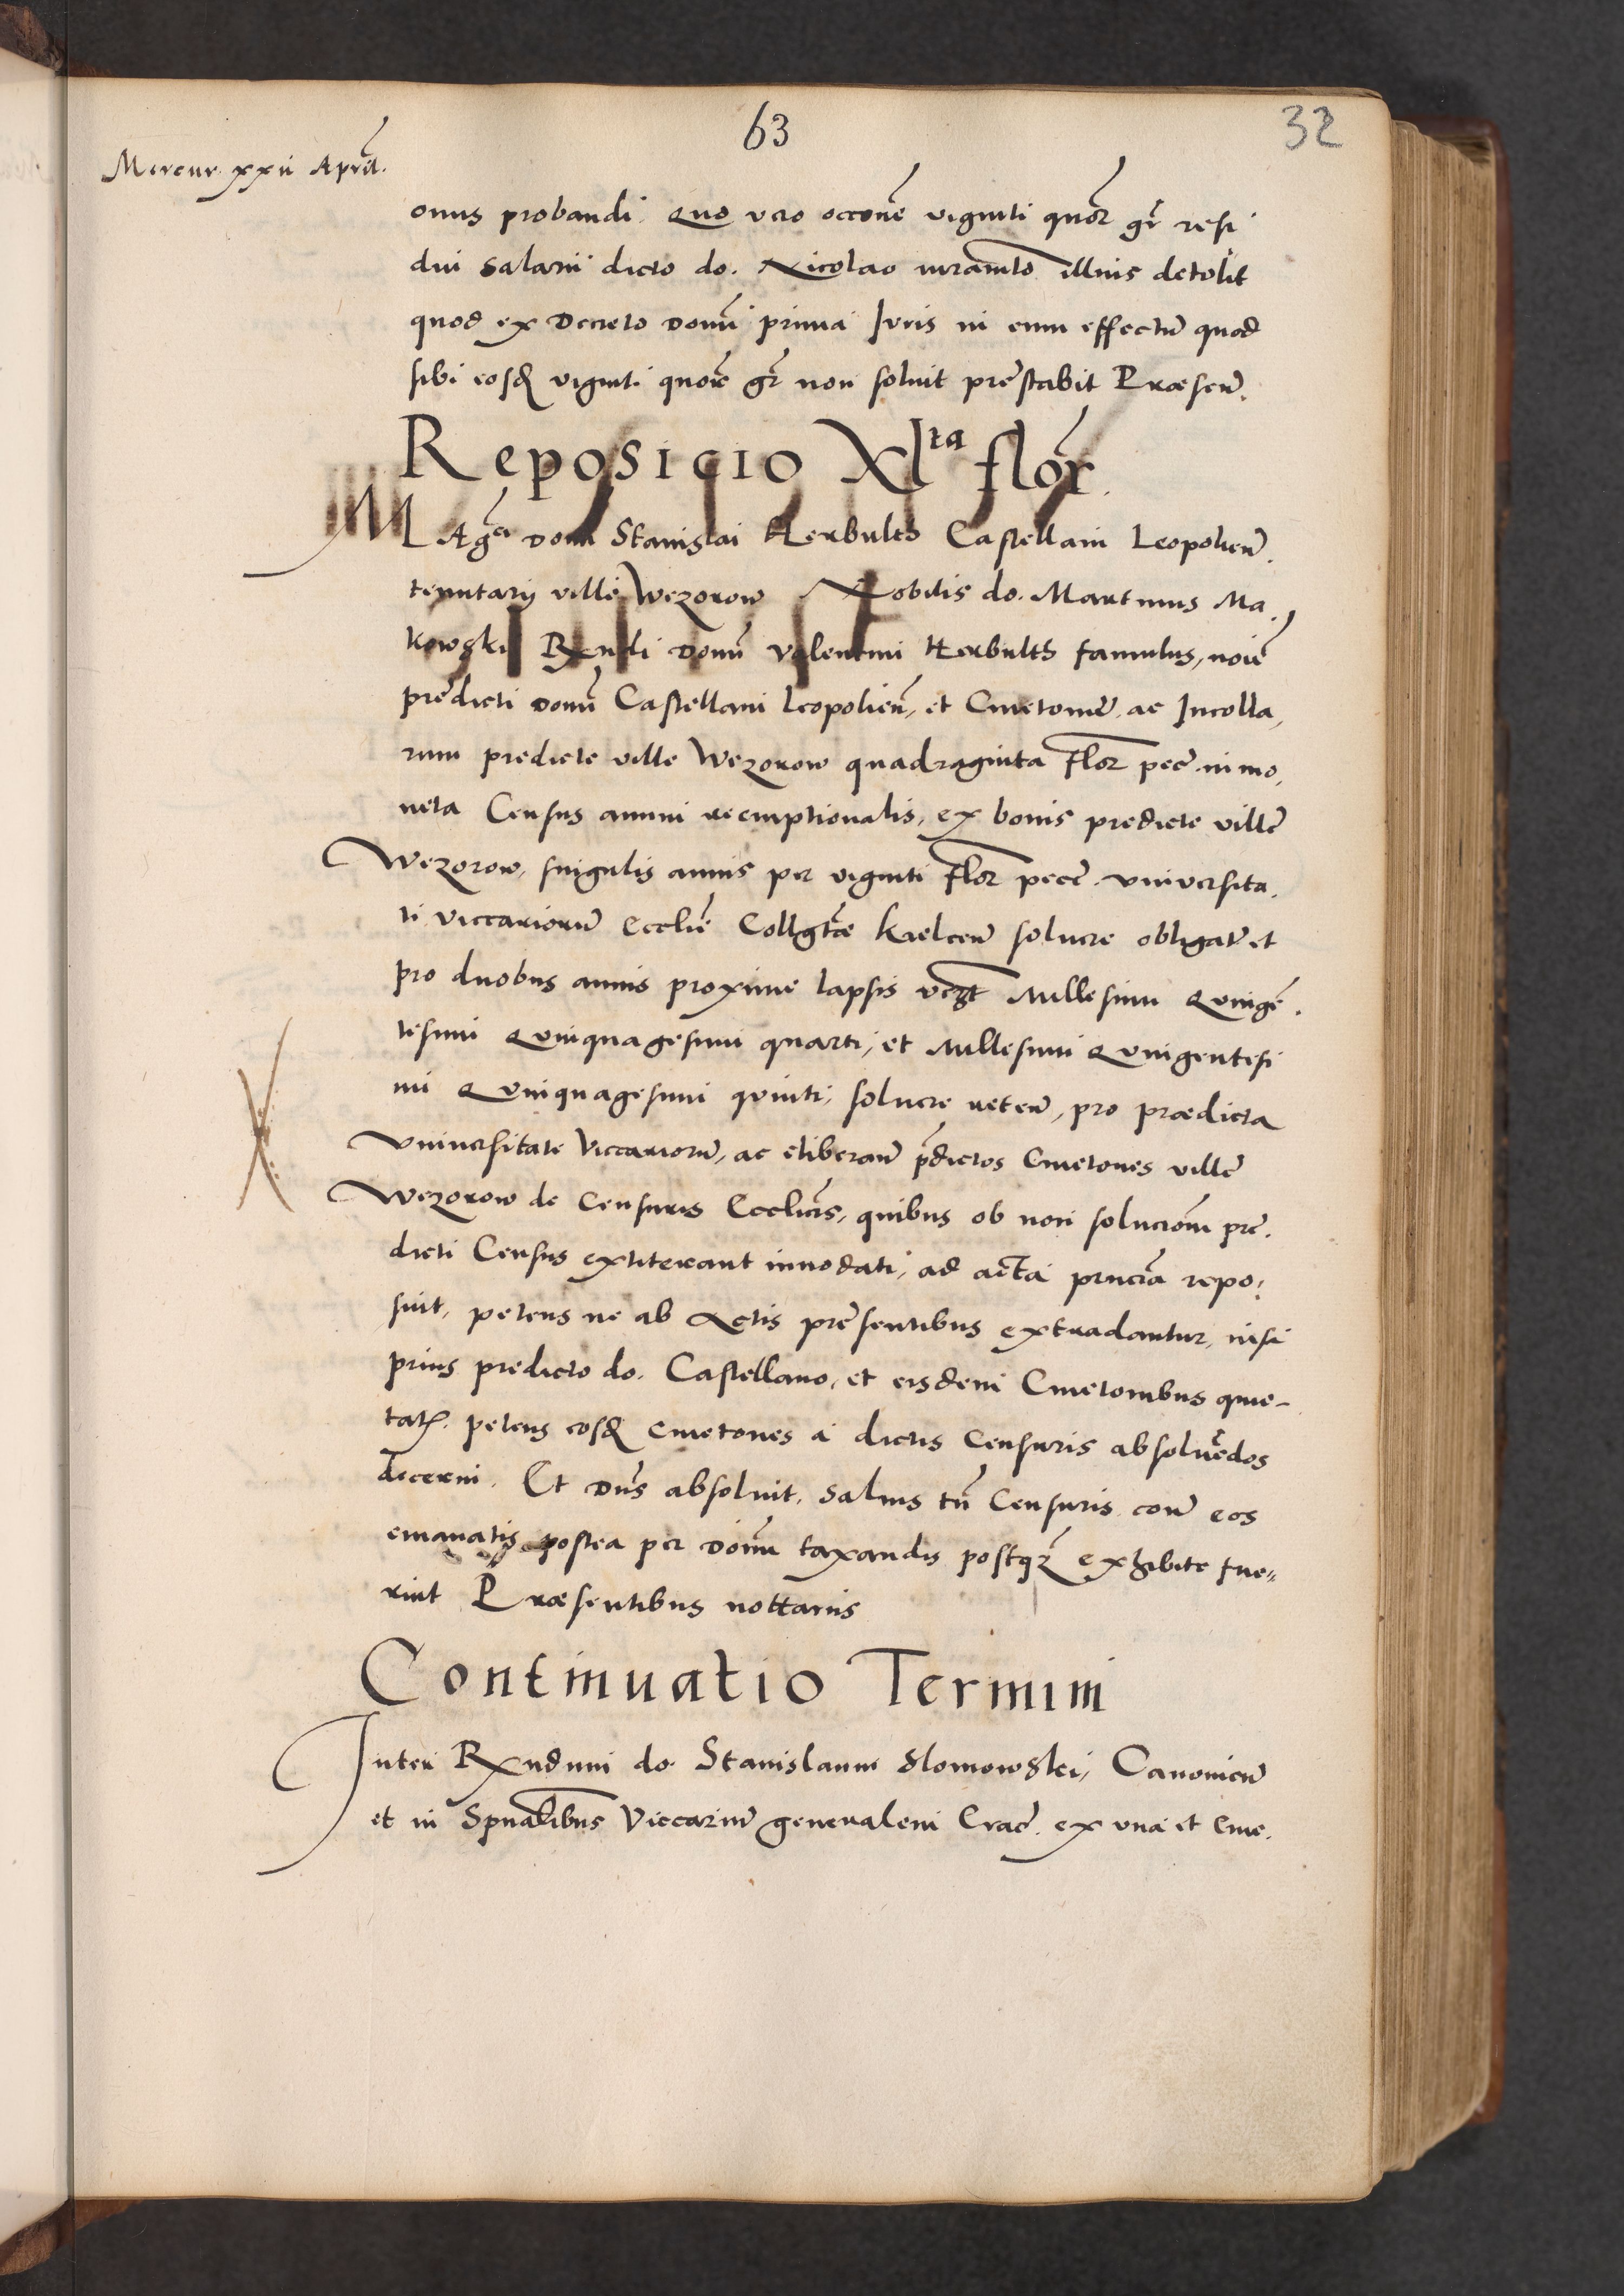 63
32
Mercur. xxii April.
onus probandi. Quo vero occone viginti quor gr resi
dui salarii dicto do. Nicolao iuramto illius detolit
quod ex Decreto Domi prima Iuris in eum effectu quod
sibi eosd viginti quor gr non soluit prestabit Præsen.
Reposicio Xlta flor.
MAgci Domi Stanislai Herbulth Castellani Leopolien.
tenutarij ville Wezorow Nobilis do. Martinus Ma.
kowski Rxndi Domi Valentini Herbulth famulus, noie
predicti Domi Castellani Leopolien, et Cmetonu ac Incolla,
rum predicte ville Wezorow quadraginta flor pec in mo,
neta Census annui reemptionalis, ex bonis predicte ville
Wezorow, singulis annis per viginti flor pecc. vniversita.
ti viccarioru Ecclie Collgtæ Kielcen soluere obligat et
pro duobus annis proxime lapsis vczt Millesimi Quinge.
tesimi Quinquagesimi quarti, et Millesimi Quingentesi
mi Quinquagesimi quinti, soluere reten, pro prædicta
Vniuersitate Viccarioru, ac eliberan pdictos Cmetones ville
Wezorow de Censuris Ecclicis, quibus ob non solucionem pre.
dicti Census extiterant innodati, ad acta pncia repo,
suit, petens ne ab Actis presentibus extradantur, nisi
prius predicto do. Castellano, et eisdem Cmetonibus quie-
tat. petens eosd Cmetones a dictis Censuris absoluedos
decerni. Et Dns absoluit, saluis tn Censuris con eos
emanatis postea per Domi taxandis postq exhibite fue„
rint Præsentibus nottariis
Continuatio Termini
Inter Rxndum do Stanislaum Slomowski, Canonicu
et in Spualibus Viccariu generalem Crac. ex vna et Cme.